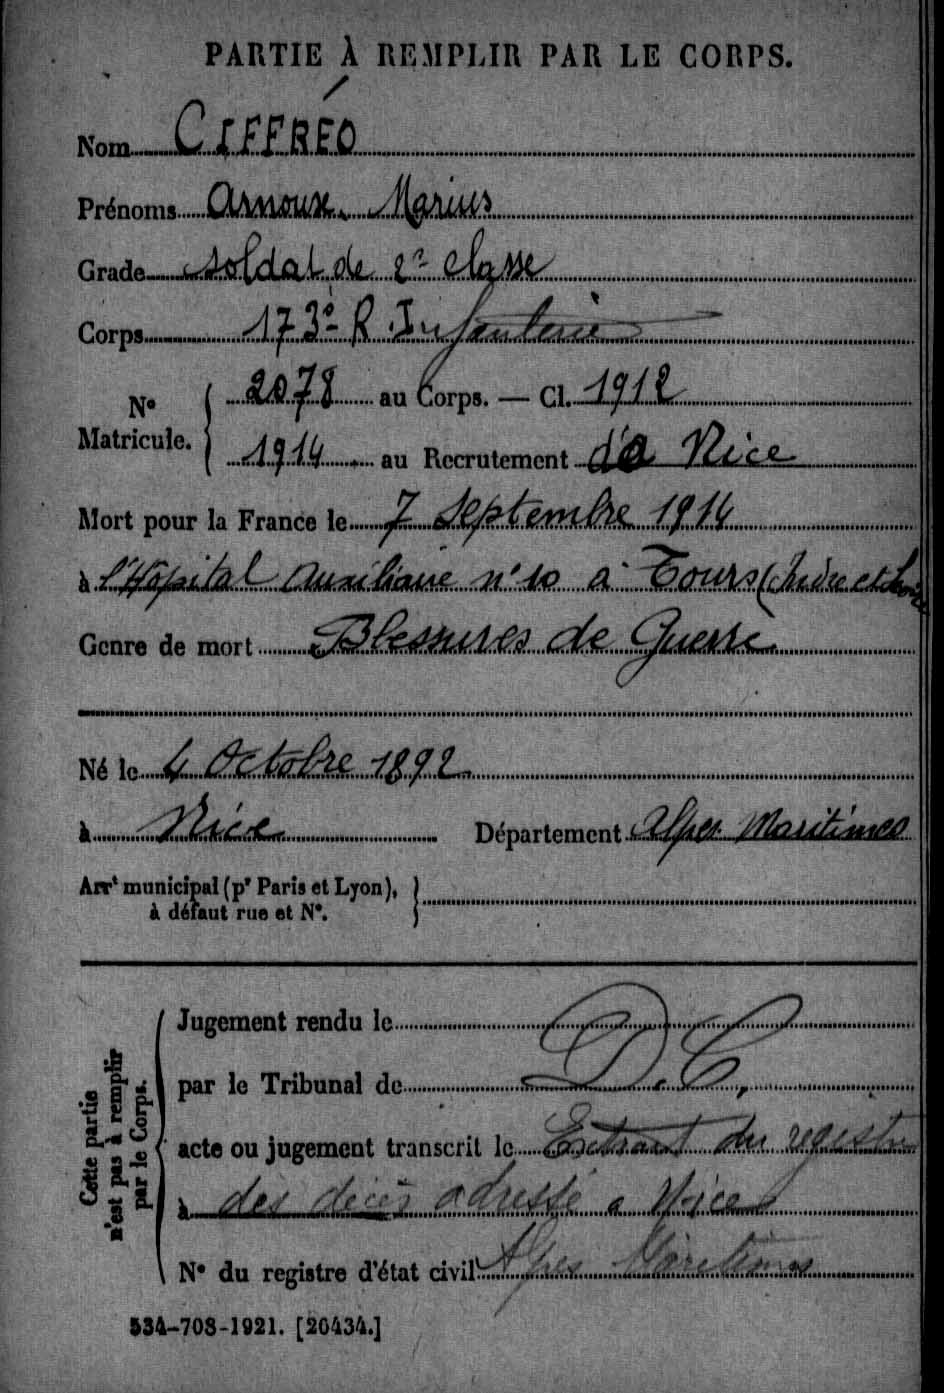 PARTIE À REMPLIR PAR LE CORPS.
Nom CIFFRÉO
Prénoms Arnoux, Marius
Grade soldat de 2e classe
Corps 173e R. Infanterie
No Matricule. { 2078 au Corps. — Cl. 1912
1914 au Recrutement Nice
Mort pour la France le 7 Septembre 1914
à l'Hôpital Auxiliaire n° 10 à Tours (Indre et Loire
Genre de mort Blessures de Guerre
Né le 4 Octobre 1892
à Nice Département Alpes Maritimes
Arrt municipal (pr Paris et Lyon), }
à défaut rue et N°.
Cette partie n'est pas à remplir par le Corps.
Jugement rendu le
par le Tribunal de D. C.
acte ou jugement transcrit le Extrait du registre
à des décès adressé a Nice
N° du registre d'état civil Alpes Maritimes
534-708-1921. [20434.]